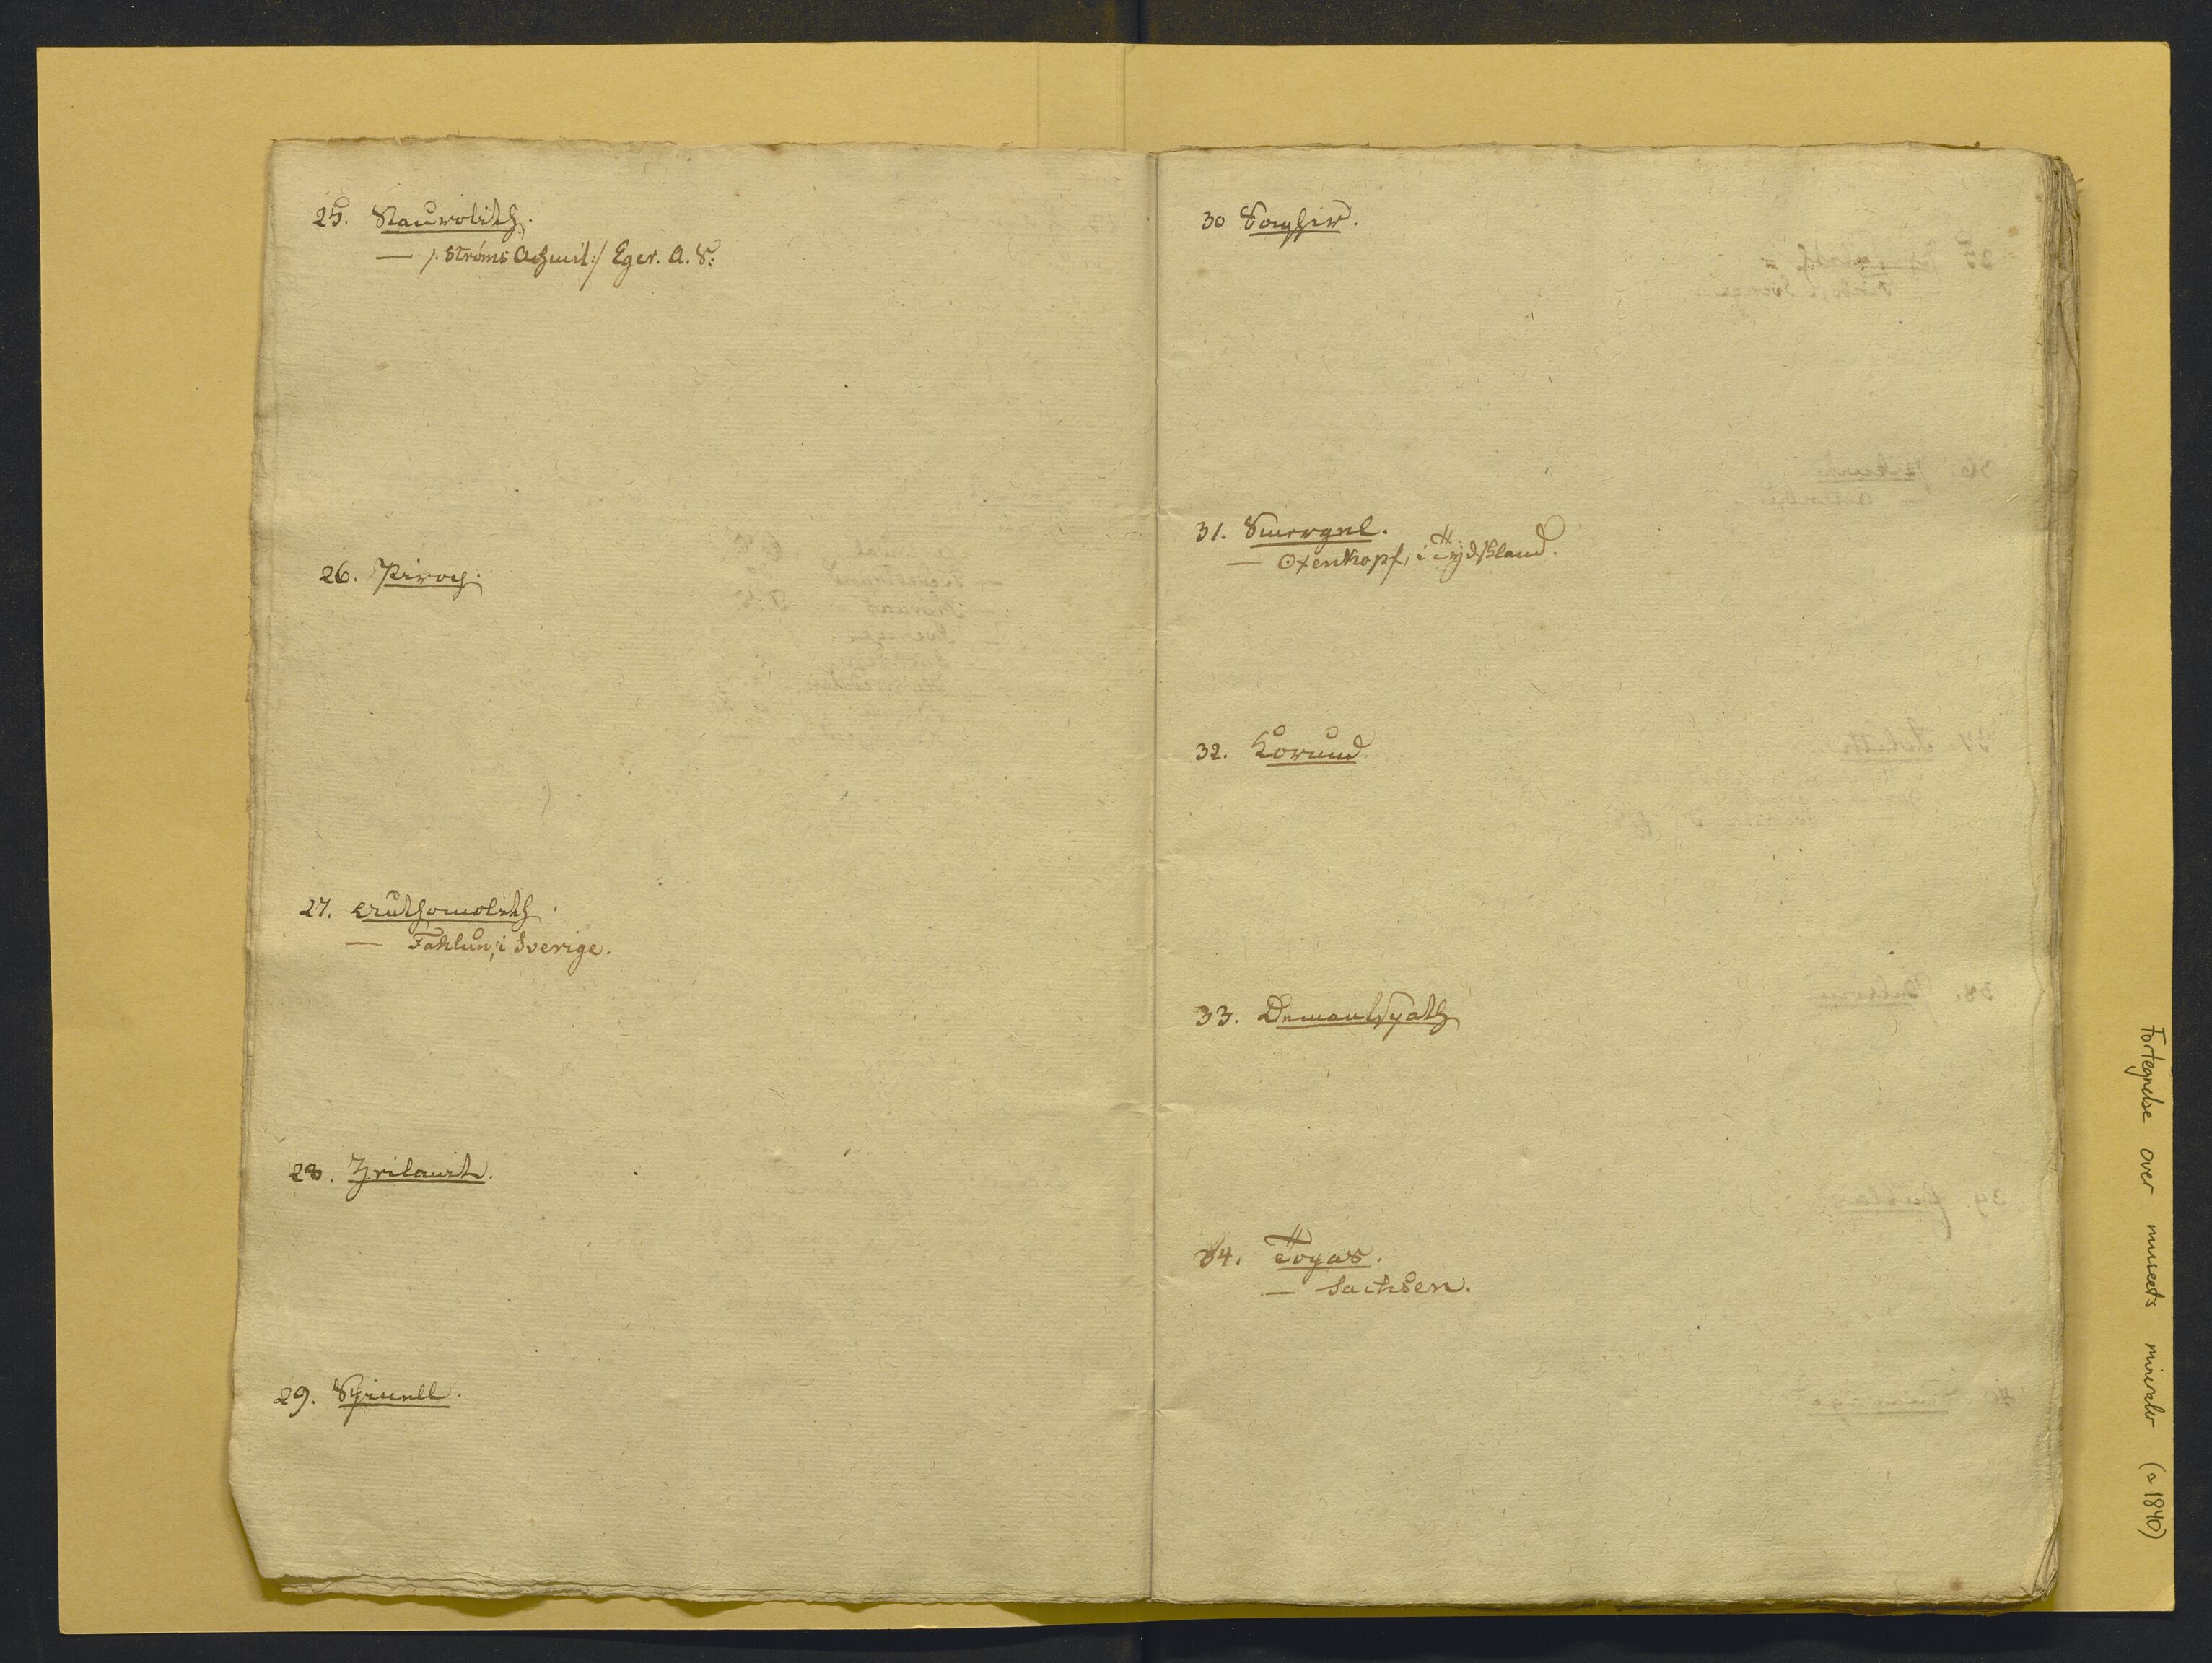 25. Staurolith.
— /: Strøms Achmit :/ Eger. A. S:
26. Pirop.
27. Authomolith.
— Fahlun, i Sverige.
28. Zeilanit.
29. Spinell.
30 Saphir.
31. Smergel.
— Oxenkopf, i Tydskland.
32. Korund.
33. Demantspath
34. Topas.
— Sachsen.
Fortegnelse over museets mineraler (o 1840)